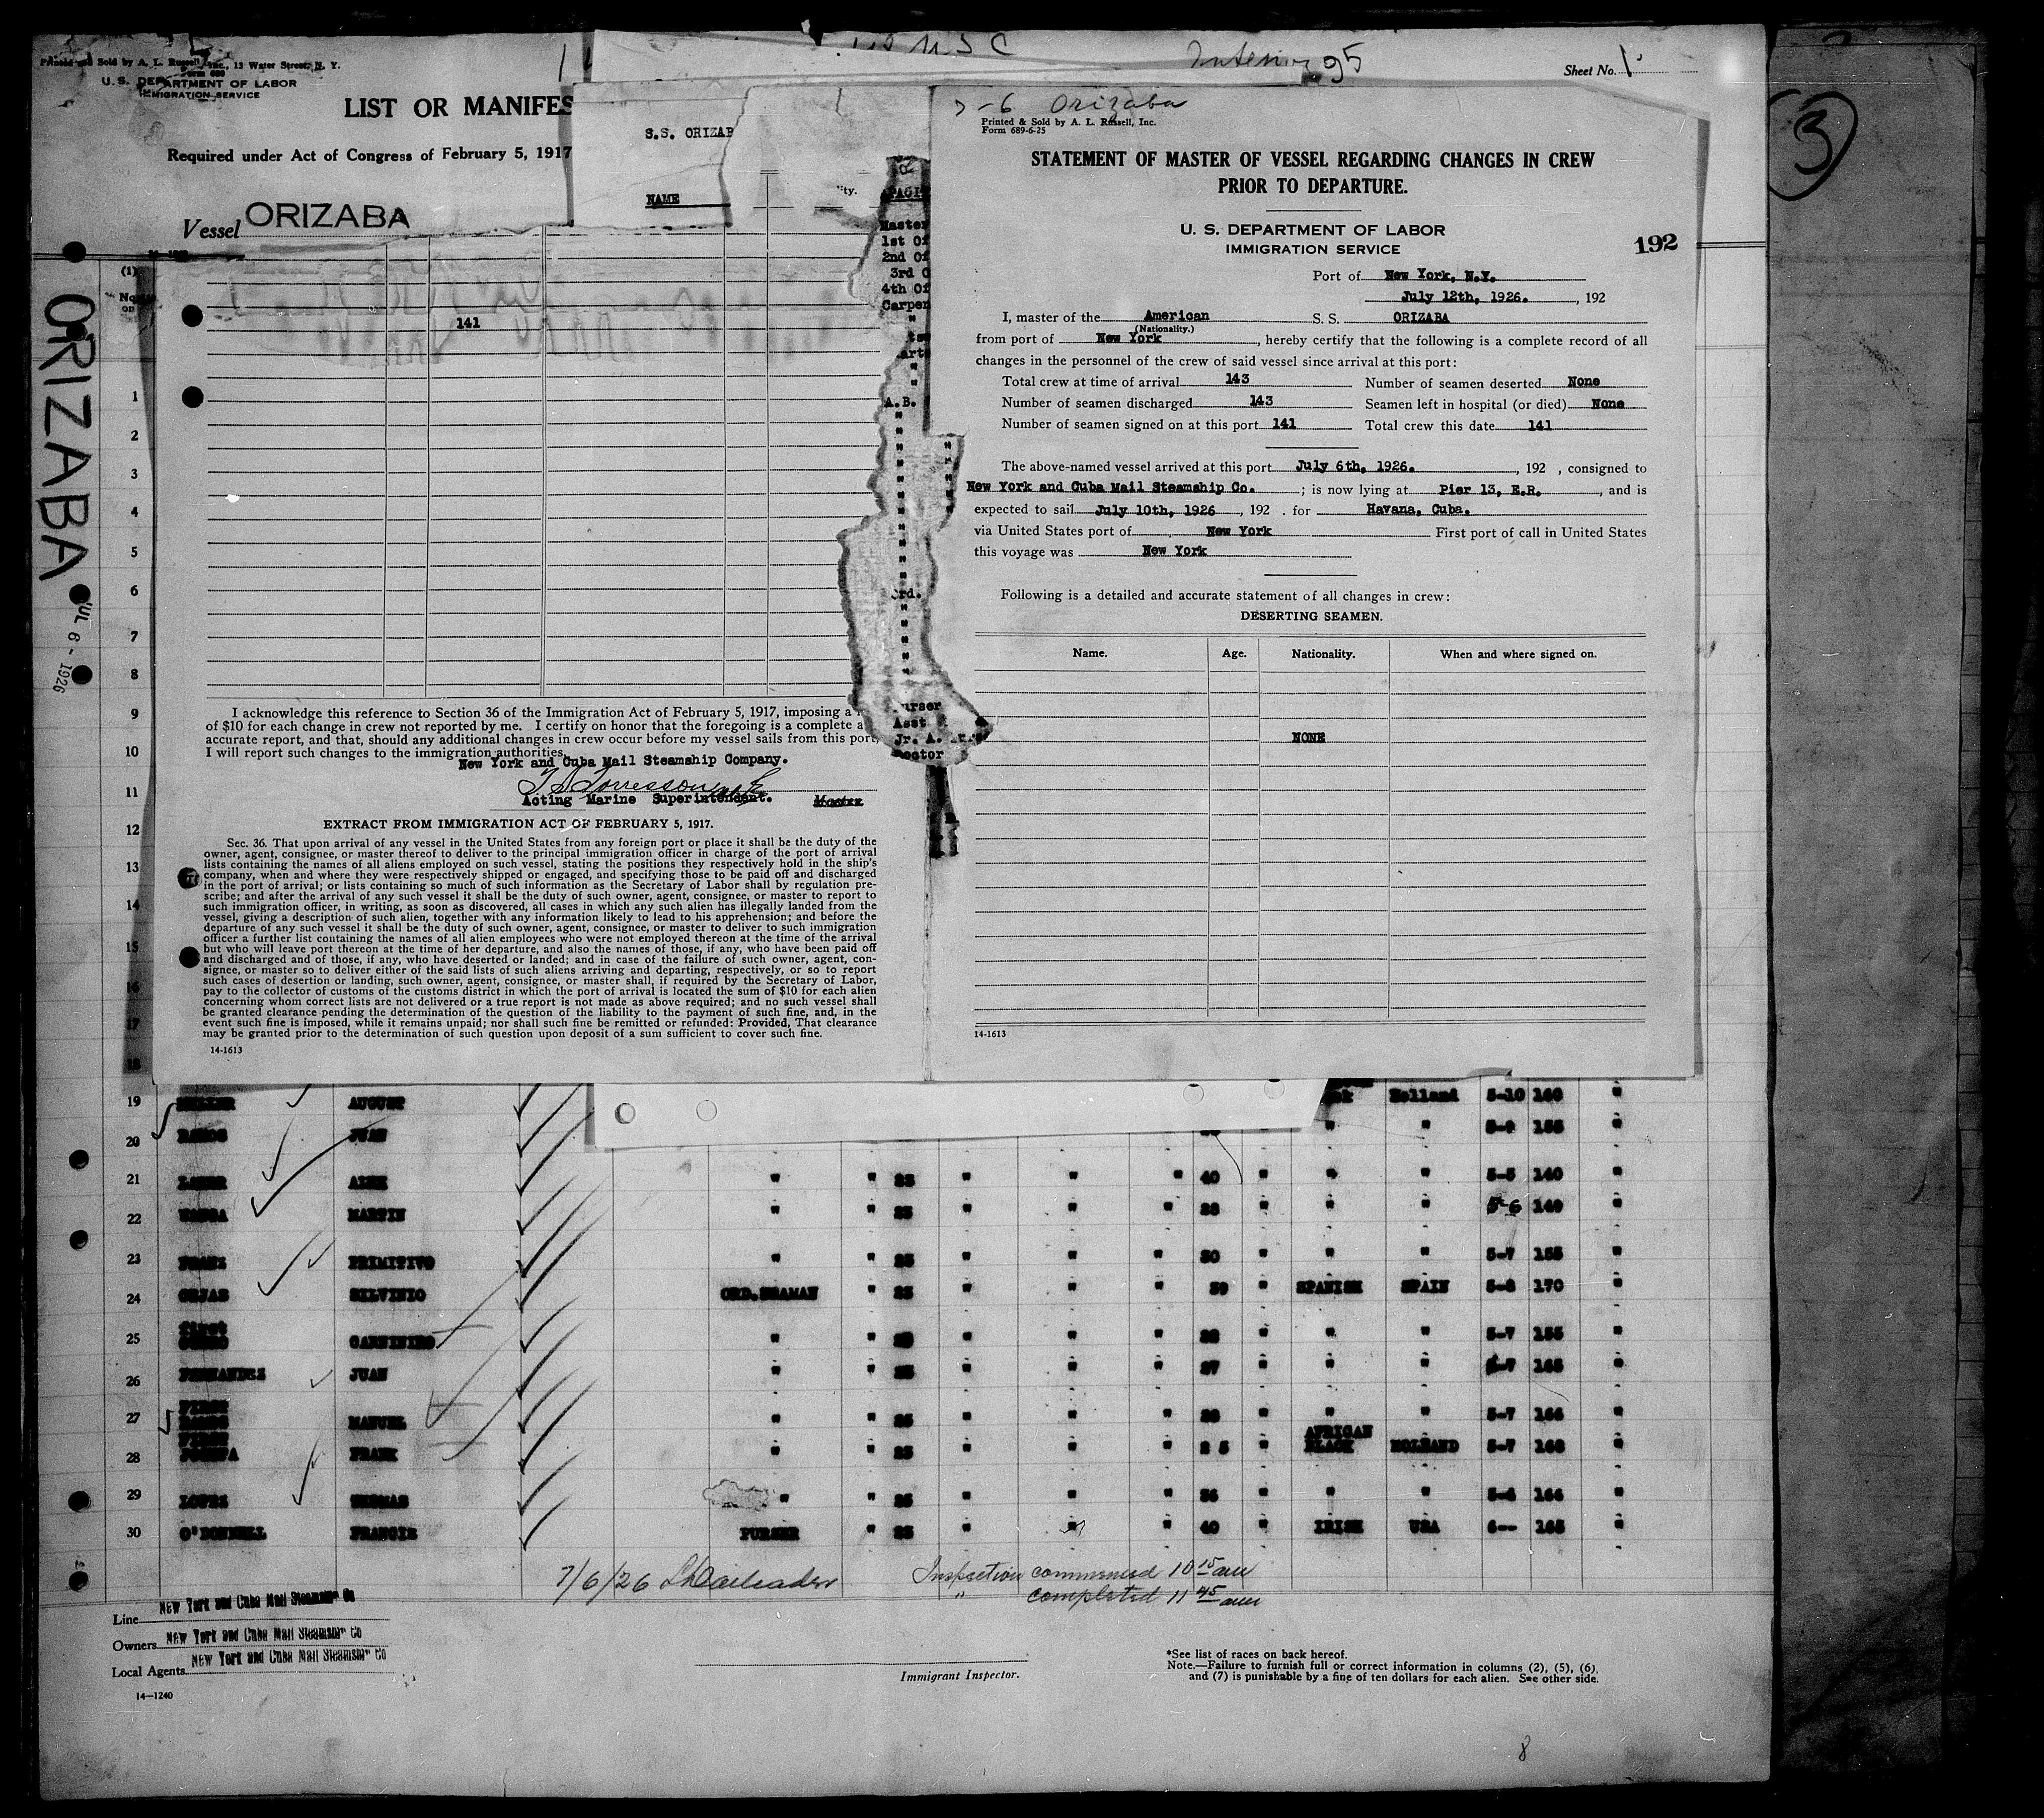 Printed and Sold by A. L. Russell, Inc., 13 Water Street, N. Y.
Form 680
U. S. DEPARTMENT OF LABOR
IMMIGRATION SERVICE
LIST OR MANIFES
Required under Act of Congress of February 5, 1917
Vessel ORIZABA
Sheet No. 1
95
3
ORIZABA
JUL 6 - 1926
S.S. ORIZAB
NAME
ity.
141
I acknowledge this reference to Section 36 of the Immigration Act of February 5, 1917, imposing a
of $10 for each change in crew not reported by me. I certify on honor that the foregoing is a complete a
accurate report, and that, should any additional changes in crew occur before my vessel sails from this port,
I will report such changes to the immigration authorities.
New York and Cuba Mail Steamship Company.
Acting Marine Superintendent.
EXTRACT FROM IMMIGRATION ACT OF FEBRUARY 5, 1917.
Sec. 36. That upon arrival of any vessel in the United States from any foreign port or place it shall be the duty of the
owner, agent, consignee, or master thereof to deliver to the principal immigration officer in charge of the port of arrival
lists containing the names of all aliens employed on such vessel, stating the positions they respectively hold in the ship's
company, when and where they were respectively shipped or engaged, and specifying those to be paid off and discharged
in the port of arrival; or lists containing so much of such information as the Secretary of Labor shall by regulation pre-
scribe; and after the arrival of any such vessel it shall be the duty of such owner, agent, consignee, or master to report to
such immigration officer, in writing, as soon as discovered, all cases in which any such alien has illegally landed from the
vessel, giving a description of such alien, together with any information likely to lead to his apprehension; and before the
departure of any such vessel it shall be the duty of such owner, agent, consignee, or master to deliver to such immigration
officer a further list containing the names of all alien employees who were not employed thereon at the time of the arrival
but who will leave port thereon at the time of her departure, and also the names of those, if any, who have been paid off
and discharged and of those, if any, who have deserted or landed; and in case of the failure of such owner, agent, con-
signee, or master so to deliver either of the said lists of such aliens arriving and departing, respectively, or so to report
such cases of desertion or landing, such owner, agent, consignee, or master shall, if required by the Secretary of Labor,
pay to the collector of customs of the customs district in which the port of arrival is located the sum of $10 for each alien
concerning whom correct lists are not delivered or a true report is not made as above required; and no such vessel shall
be granted clearance pending the determination of the question of the liability to the payment of such fine, and, in the
event such fine is imposed, while it remains unpaid; nor shall such fine be remitted or refunded: Provided, That clearance
may be granted prior to the determination of such question upon deposit of a sum sufficient to cover such fine.
14-1613
Master
1st Of
2nd Of
3rd O
4th Of
Carpen
"
A.B.
"
rd.
"
urser
Asst
Jr. A.
octor
7-6 Orizaba
Printed & Sold by A. L. Russell, Inc.
Form 689-6-25
STATEMENT OF MASTER OF VESSEL REGARDING CHANGES IN CREW
PRIOR TO DEPARTURE.
U. S. DEPARTMENT OF LABOR
IMMIGRATION SERVICE
192
Port of New York, N.Y.
July 12th, 1926. , 192
I, master of the American S. S. ORIZABA
(Nationality.)
from port of New York , hereby certify that the following is a complete record of all
changes in the personnel of the crew of said vessel since arrival at this port:
Total crew at time of arrival 143 Number of seamen deserted None
Number of seamen discharged 143 Seamen left in hospital (or died) None
Number of seamen signed on at this port 141 Total crew this date 141
The above-named vessel arrived at this port July 6th, 1926. , 192 , consigned to
New York and Cuba Mail Steamship Co. ; is now lying at Pier 13, E.R. , and is
expected to sail July 10th, 1926 , 192 . for Havana, Cuba.
via United States port of New York First port of call in United States
this voyage was New York
Following is a detailed and accurate statement of all changes in crew:
DESERTING SEAMEN.
Name. Age. Nationality. When and where signed on.
NONE
14-1613
(1)
No.
on
1
2
3
4
5
6
7
8
9
10
11
12
13
14
15
16
17
18
19 AUGUST Holland 5-10 160 "
20 RAMOS JUAN " " 5-9 155 "
21 ALEX " " 25 " " " 40 " " " 5-5 140 "
22 MARTIN " " 25 " " " 28 " " " 5-6 140 "
23 PRIMITIVO " " 25 " " " 30 " " " 5-7 155 "
24 SILVINIO ORD.SEAMAN " 25 " " " 39 " SPANISH SPAIN 5-8 170 "
25 " " " " " " " " 5-7 155 "
26 FERNANDEZ JUAN " " 25 " " " 27 " " " 5-7 165 "
27 MANUEL " " 25 " " " 28 " " " 5-7 166 "
28 FRANK " " 25 " " " 25 " AFRICAN BLACK HOLLAND 5-7 168 "
29 LOPEZ THOMAS " " 25 " " " 36 " " " 166 "
30 O'DONNELL FRANCIS PURSER " 25 " " " 40 " IRISH USA 6-- 165 "
7/6/26
Inspection commenced 10 15 am
" completed 11 45 am
Line New York and Cuba Mail Steamship Co
Owners New York and Cuba Mail Steamship Co
Local Agents New York and Cuba Mail Steamship Co
14-1240
Immigrant Inspector.
*See list of races on back hereof.
Note.—Failure to furnish full or correct information in columns (2), (5), (6),
and (7) is punishable by a fine of ten dollars for each alien. See other side.
8